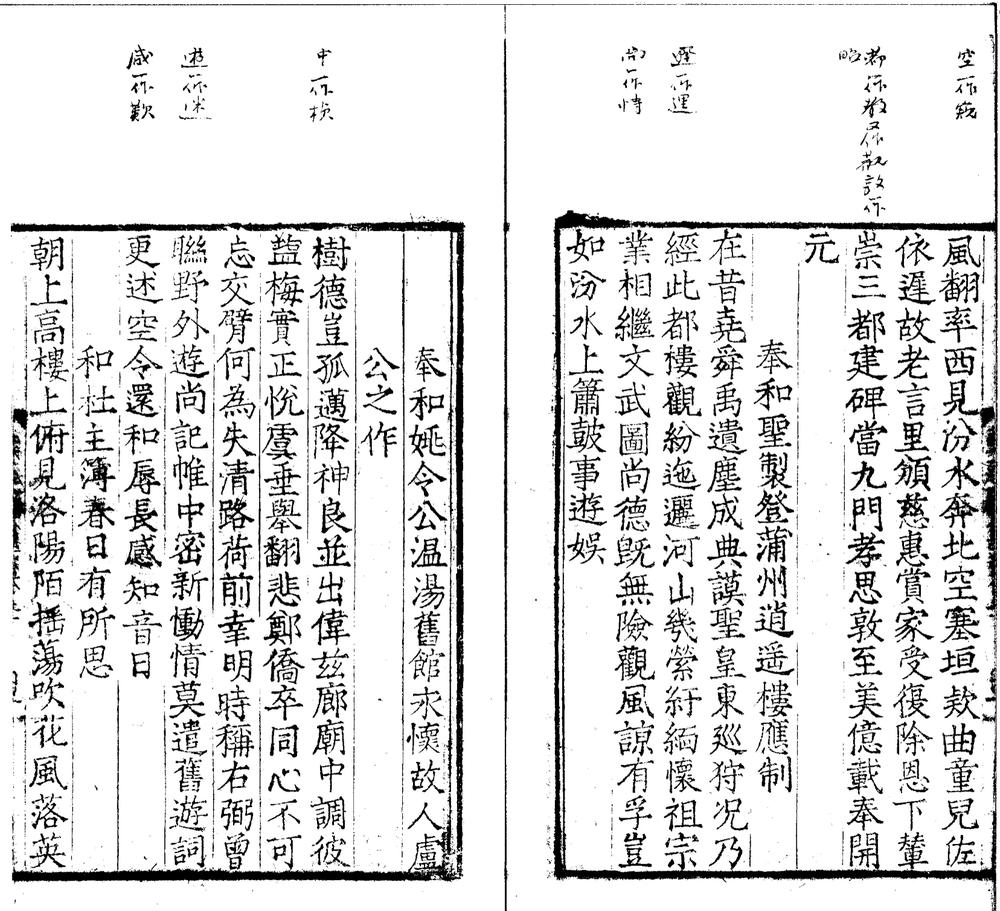 空一作
尚一作恃
風翻率西見汾水奔北空塞垣欵曲童兒佐
依遲故老言里頒慈惠賞家受復除恩下輦
崇三都建碑當九門孝思敦至美億載奉開
元
奉和聖製登蒲州逍遥樓應制
在昔堯舜禹遺塵成典謨聖皇東廵狩况乃
經此都樓觀紛迤邐河山幾縈紆緬懷祖宗
業相繼文武圖尚德旣無險觀風諒有孚豈
如汾水上簫鼓事遊娱
中一作
遊一作迷
感一作歎
奉和姚令公温湯舊館永懷故人盧
公之作
樹德豈孤邁降神良並出偉兹廊廟中調彼
鹽梅實正恱虞垂舉翻悲鄭僑卒同心不可
忘交臂何為失清路荷前幸明時稱右弼曾
聮野外遊尚記帷中密新慟情莫遣舊遊詞
更述空令還和辱長感知音日
和杜主簿春日有所思
朝上高樓上俯見洛陽陌揺蕩吹花風落英